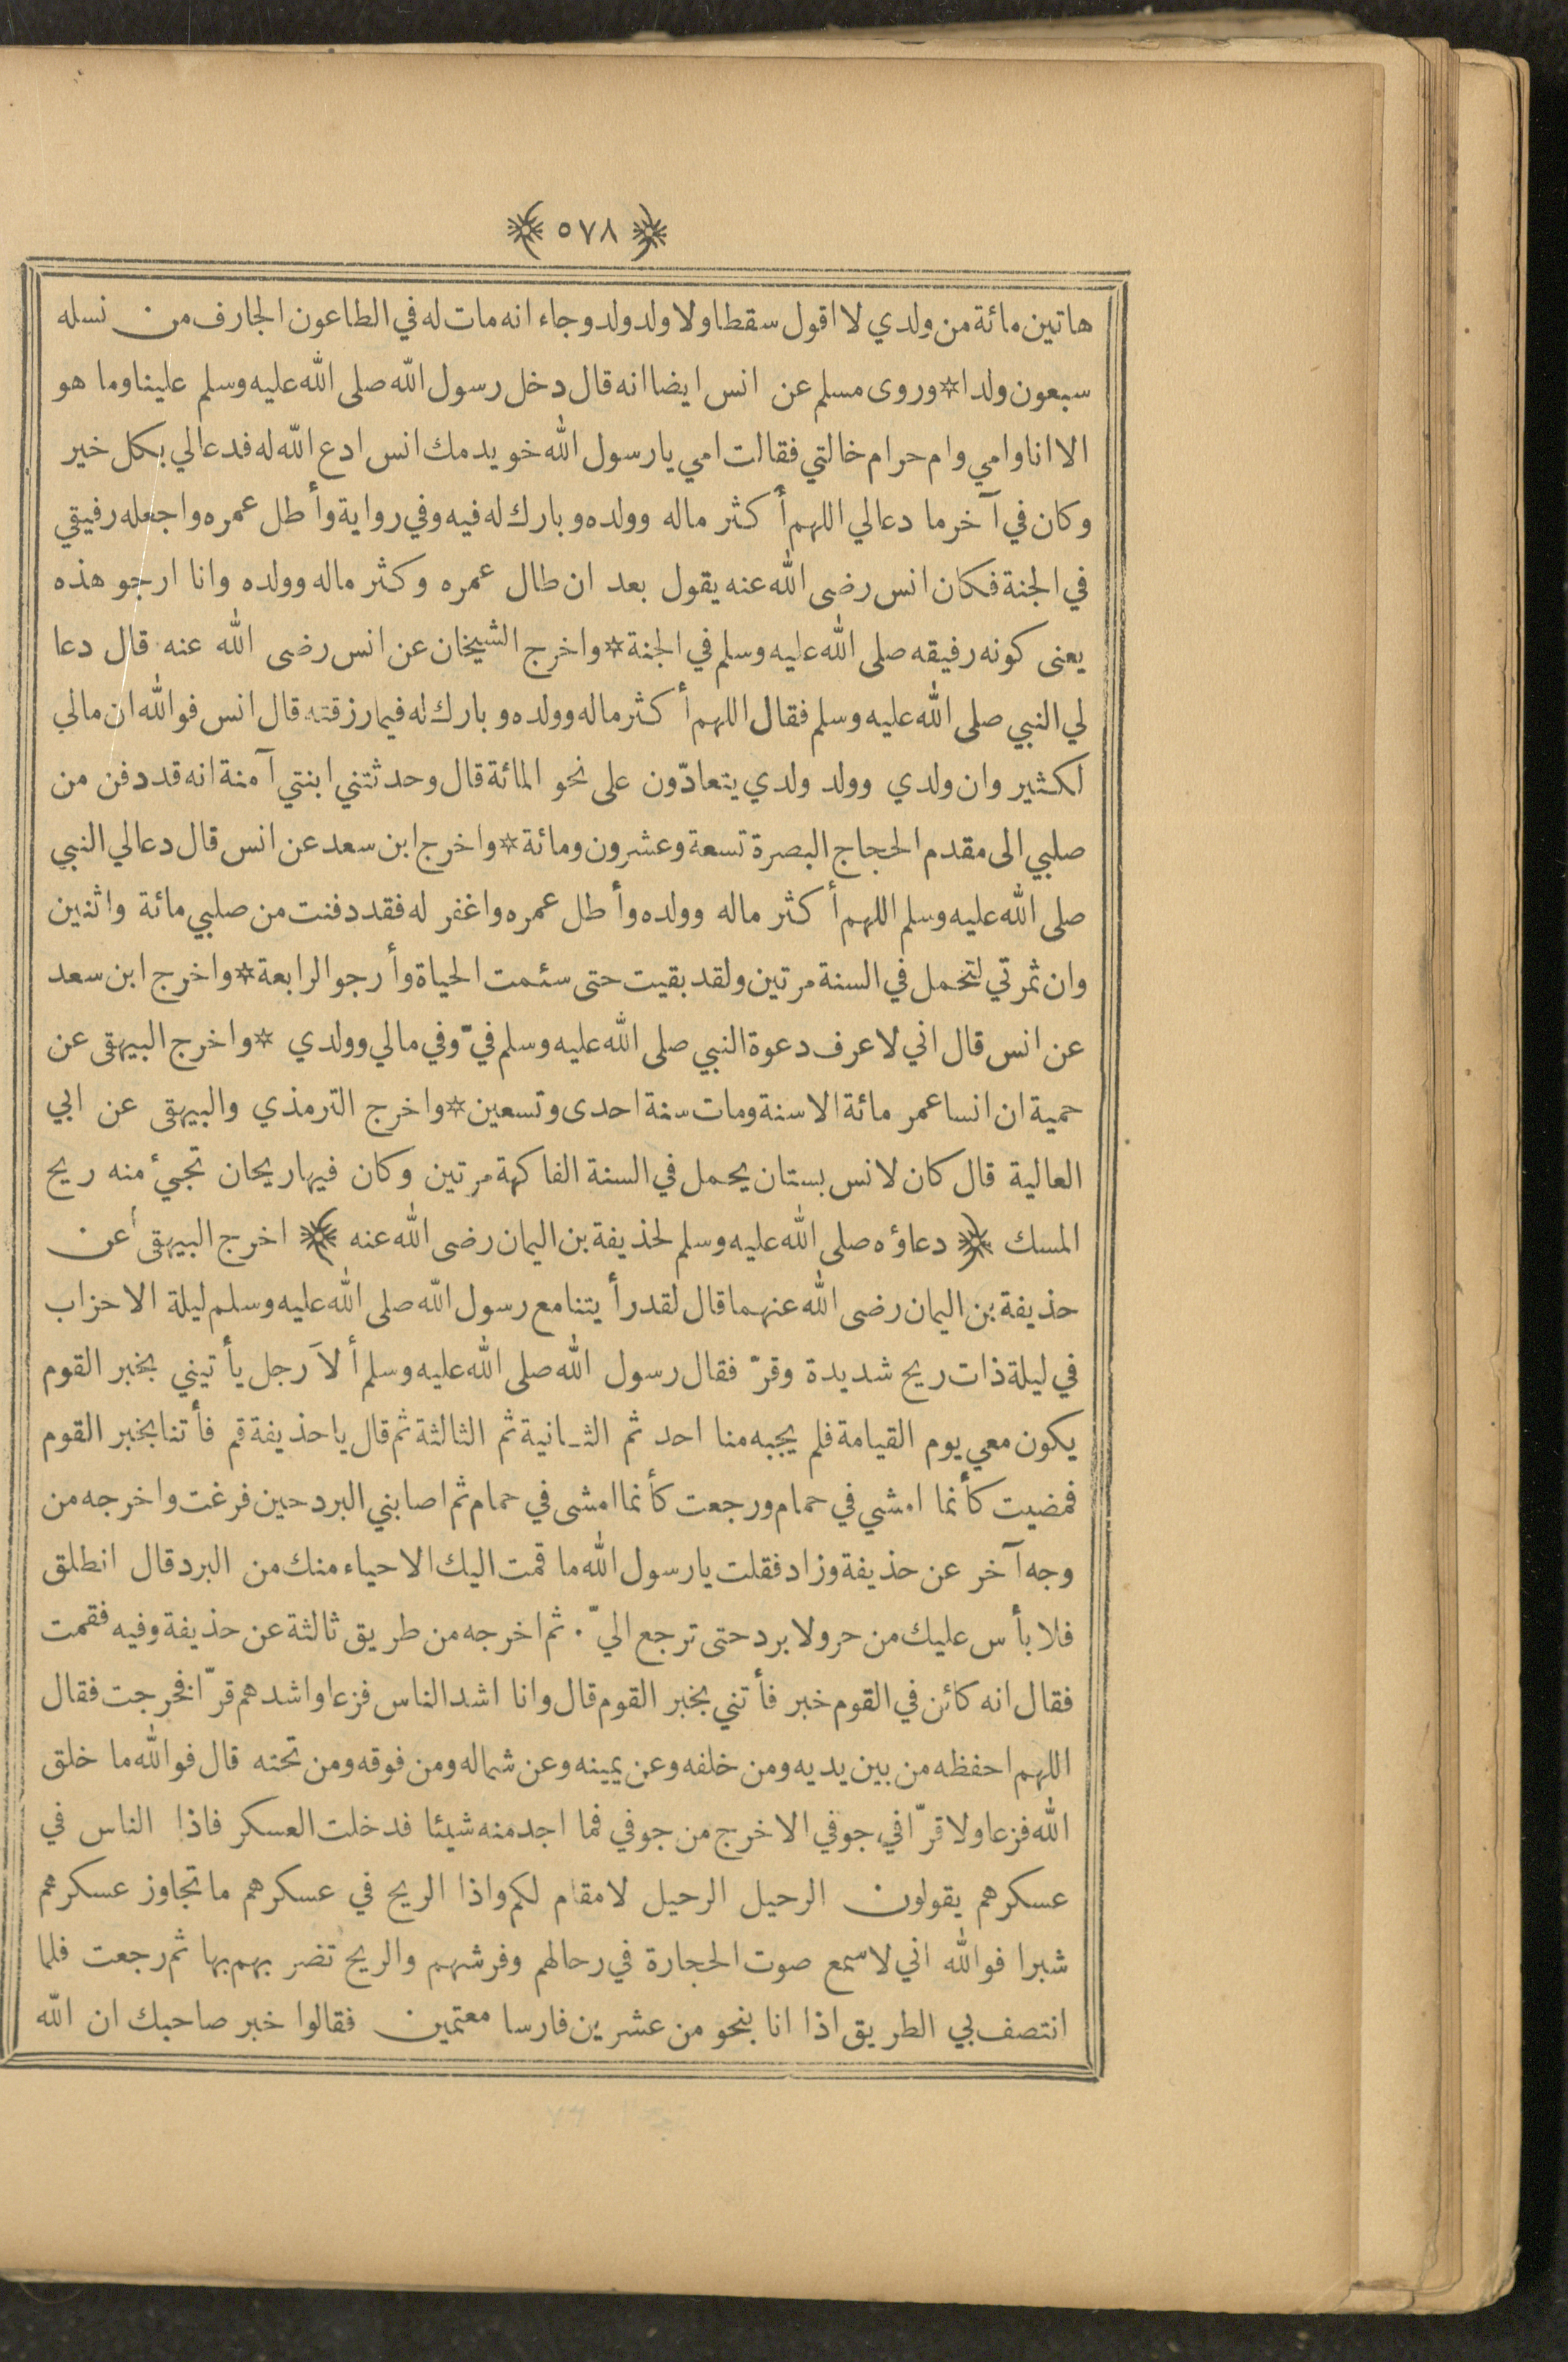 ﴿ ٥٧٨ ﴾
هاتين مائة من ولدي لا اقول سقطا ولا ولد ولد وجاء انه مات له في الطاعون الجارف من نسله
سبعون ولدا * وروى مسلم عن انس ايضا انه قال دخل رسول الله صلى الله عليه وسلم علينا وما هو
الا انا وامي وام حرام خالتي فقالت امي يا رسول الله خويدمك انس ادع الله له فدعا لي بكل خير
وكان في آخر ما دعا لي اللهم أكثر ماله وولده وبارك له فيه وفي رواية وأطل عمره واجعله رفيقي
في الجنة فكان انس رضى الله عنه يقول بعد ان طال عمره وكثر ماله وولده وانا ارجو هذه
يعنى كونه رفيقه صلى الله عليه وسلم في الجنة * واخرج الشيخان عن انس رضى الله عنه قال دعا
لي النبي صلى الله عليه وسلم فقال اللهم أكثر ماله وولده وبارك له فيما رزقته قال انس فوالله ان مالي
لكثير وان ولدي وولد ولدي يتعادّون على نحو المائة قال وحدثتني ابنتي آمنة انه قد دفن من
صلبي الى مقدم الحجاج البصرة تسعة وعشرون ومائة * واخرج ابن سعد عن انس قال دعا لي النبي
صلى الله عليه وسلم اللهم أكثر ماله وولده وأطل عمره واغفر له فقد دفنت من صلبي مائة واثنين
وان ثمرتي لتحمل في السنة مرتين ولقد بقيت حتى سئمت الحياة وأرجو الرابعة * واخرج ابن سعد
عن انس قال اني لاعرف دعوة النبي صلى الله عليه وسلم فيّ وفي مالي وولدي * واخرج البيهقى عن
حمية ان انسا عمر مائة الا سنة ومات سنة احدى وتسعين * واخرج الترمذي والبيهقى عن ابي
العالية قال كان لانس بستان يحمل في السنة الفاكهة مرتين وكان فيها ريحان تجيء منه ريح
المسك ﴿ دعاؤه صلى الله عليه وسلم لحذيفة بن اليمان رضى الله عنه ﴾ اخرج البيهقى عن
حذيفة بن اليمان رضى الله عنهما قال لقد رأيتنا مع رسول الله صلى الله عليه وسلم ليلة الاحزاب
في ليلة ذات ريح شديدة وقرّ فقال رسول الله صلى الله عليه وسلم ألاَ رجل يأتيني بخبر القوم
يكون معي يوم القيامة فلم يجبه منا احد ثم الثـانية ثم الثالثة ثم قال يا حذيفة قم فأتنا بخبر القوم
فمضيت كأنما امشي في حمام ورجعت كأنما امشى في حمام ثم اصابني البرد حين فرغت واخرجه من
وجه آخر عن حذيفة وزاد فقلت يا رسول الله ما قمت اليك الا حياء منك من البرد قال انطلق
فلا بأس عليك من حر ولا برد حتى ترجع اليّ . ثم اخرجه من طريق ثالثة عن حذيفة وفيه فقمت
فقال انه كائن في القوم خبر فأتني بخبر القوم قال وانا اشد الناس فزعا واشدهم قرّا فخرجت فقال
اللهم احفظه من بين يديه ومن خلفه وعن يمينه وعن شماله ومن فوقه ومن تحته قال فوالله ما خلق
الله فزعا ولا قرّا في جوفي الا خرج من جوفي فما اجد منه شيئا فدخلت العسكر فاذا الناس في
عسكرهم يقولون الرحيل الرحيل لا مقام لكم واذا الريح في عسكرهم ما تجاوز عسكرهم
شبرا فوالله اني لاسمع صوت الحجارة في رحالهم وفرشهم والريح تضر بهم بها ثم رجعت فلما
انتصف بي الطريق اذا انا بنحو من عشرين فارسا معتمين فقالوا خبر صاحبك ان الله